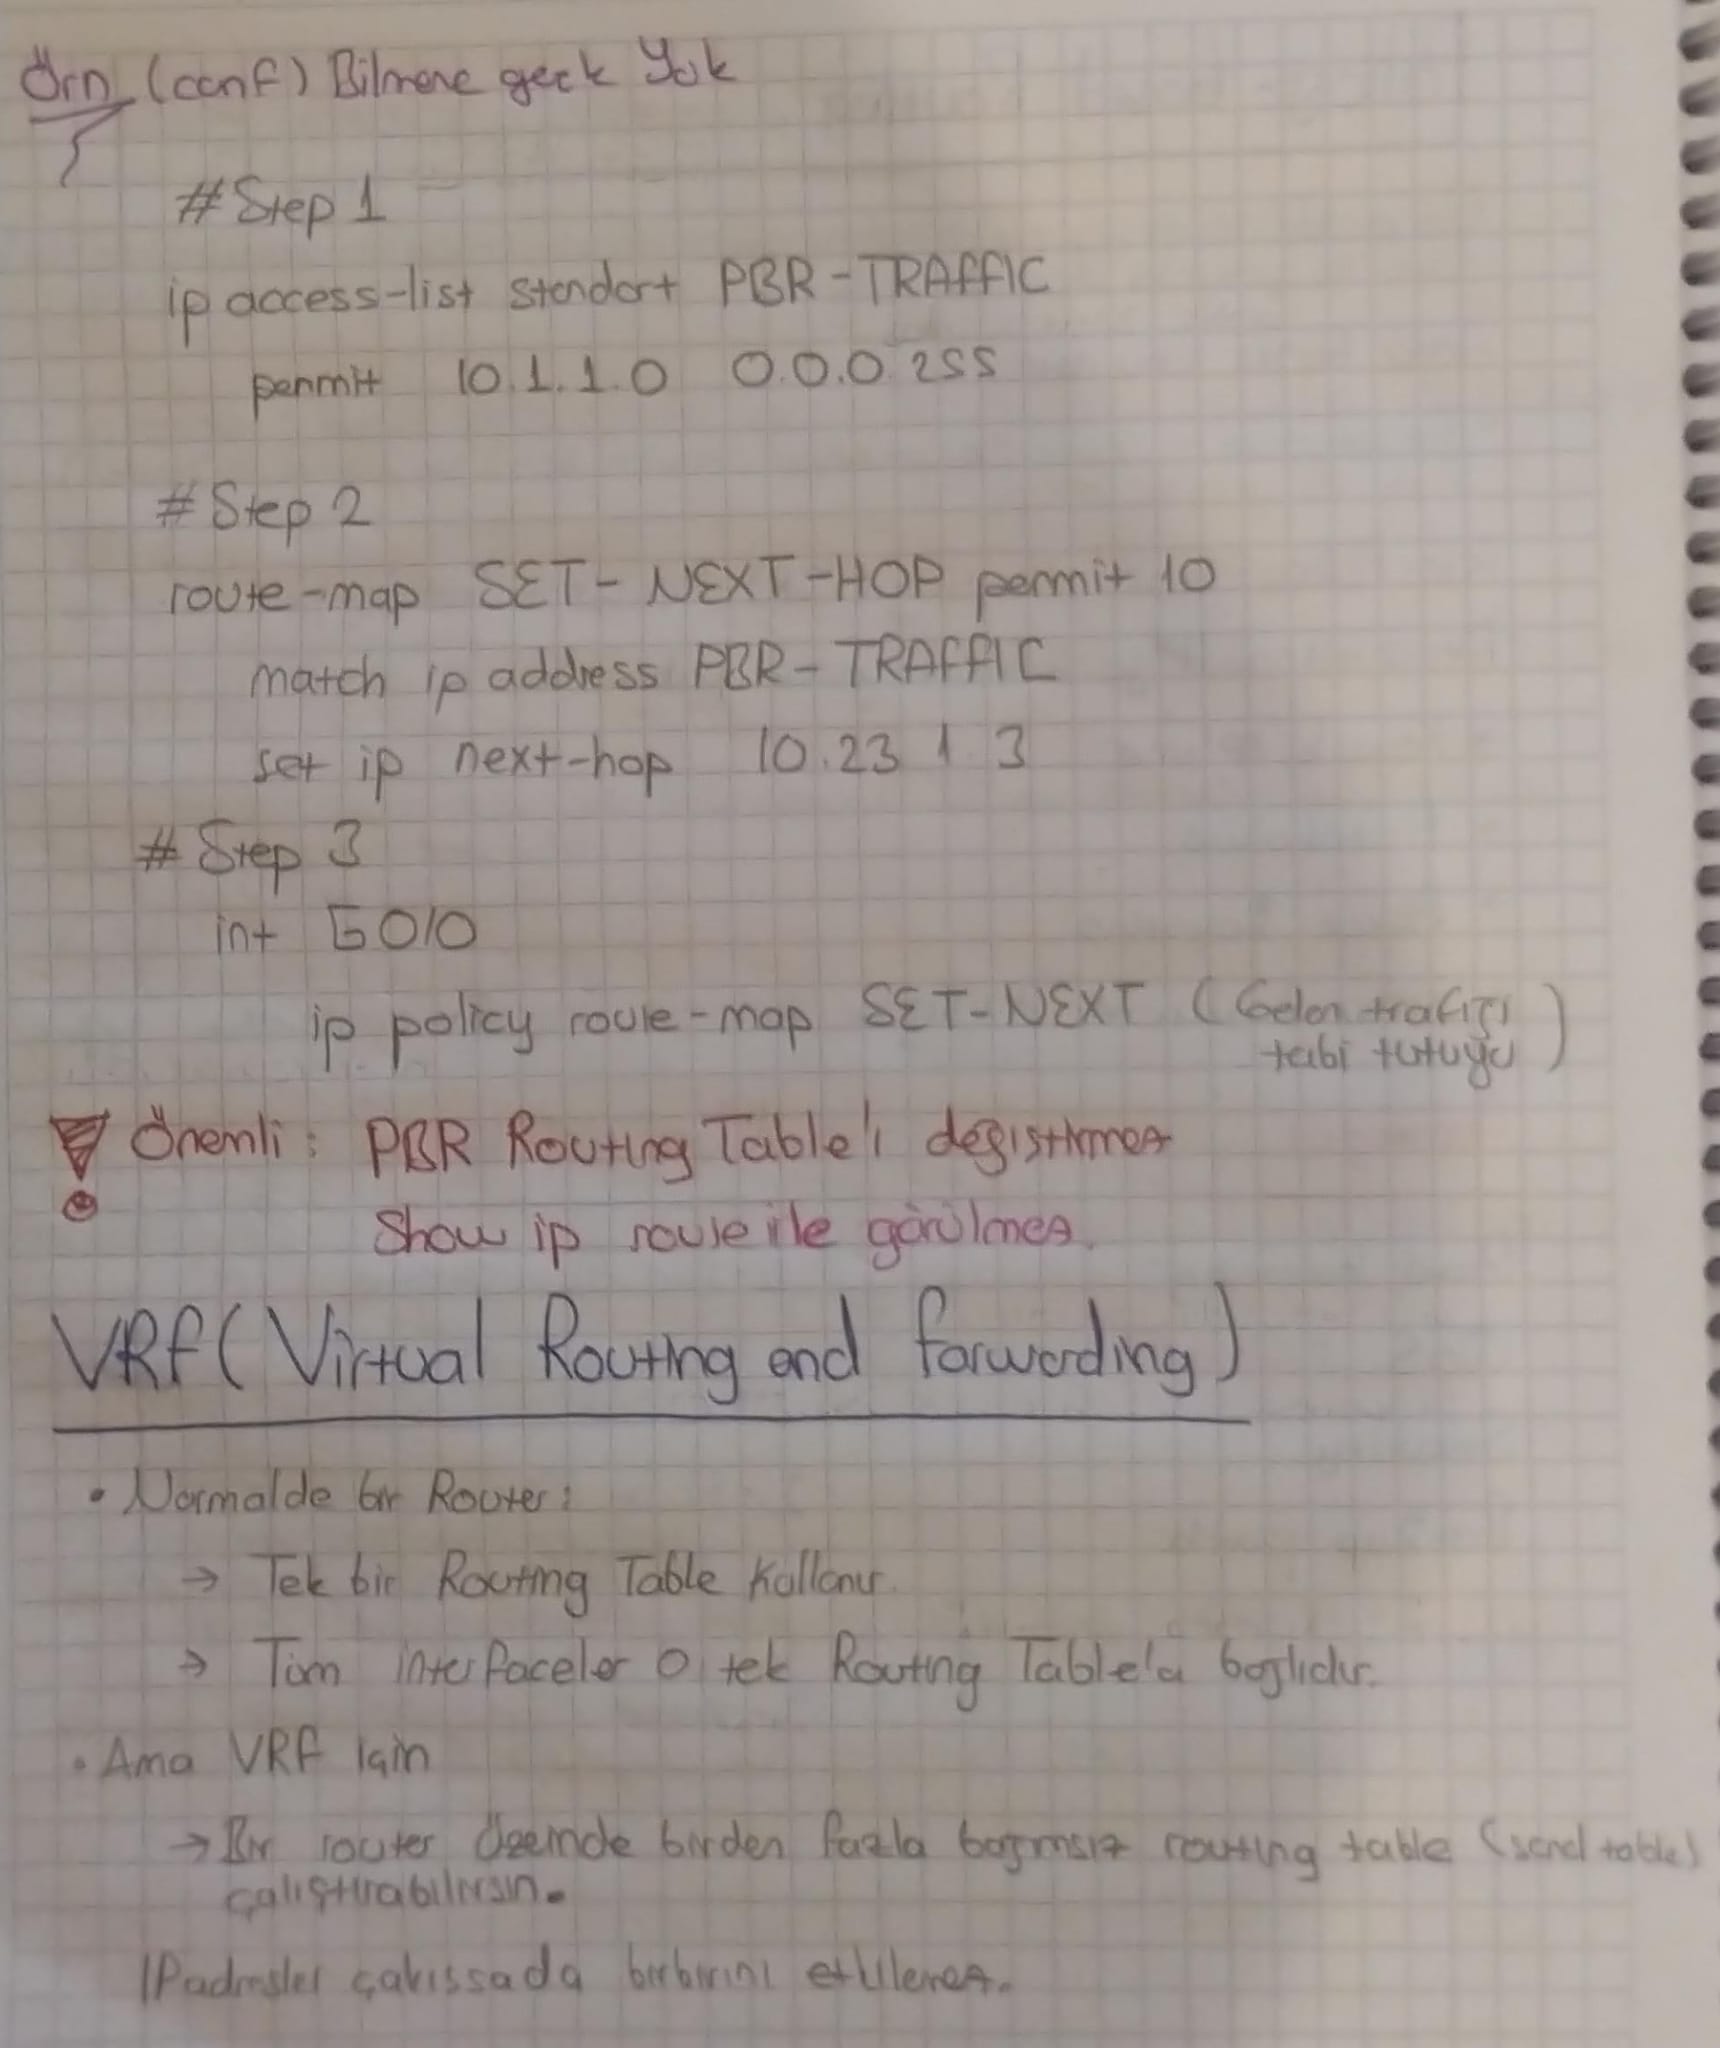 Örn (conf) Bilmene gerk Yok
#Step 1
ip access-list standart PBR-TRAFFIC
permit 10.1.1.0 0.0.0.255
#Step 2
route-map SET-NEXT-HOP permit 10
match ip address PBR-TRAFFIC
set ip next-hop 10.23 1 3
# Step 3
int G0/0
ip policy route-map SET-NEXT (Gelen trafiği
tabi tutuyo)
! Önemli: PBR Routing Table'ı değiştirmez
Show ip route ile görülmez.
VRF (Virtual Routing and Forwarding)
• Normalde bir Router:
→ Tek bir Routing Table Kullanır.
→ Tüm interfaceler o tek Routing Table'a bağlıdır.
• Ama VRF için
→ Bir router üzerinde birden fazla bağımsız routing table (sanal table)
çalıştırabilirsin.
IPadresler çakıssada birbirini etkilemez.